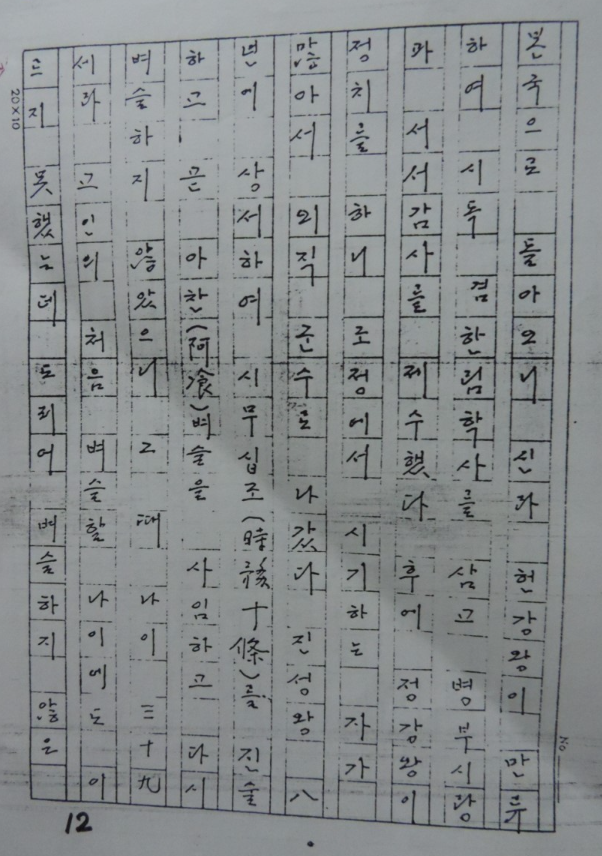 No
본국으로 돌아오니 신라 헌강왕이 만류
하여 시독 겸 한림학사를 삼고 병부시랑
과 서서감사를 제수했다 후에 정강왕이
정치를 하니 조정에서 시기하는 자가
많아서 외직 군수로 나갔다 진성왕 八
년에 상서하여 시무십조(時務十條)를 진술
하고 곧 아찬(阿飡)벼슬을 사임하고 다시
벼슬하지 않았으니 그 때 나이 三十九
세라 고인의 처음 벼슬할 나이에도 이
르지 못했는데 도리어 벼슬하지 않은
20×10
12